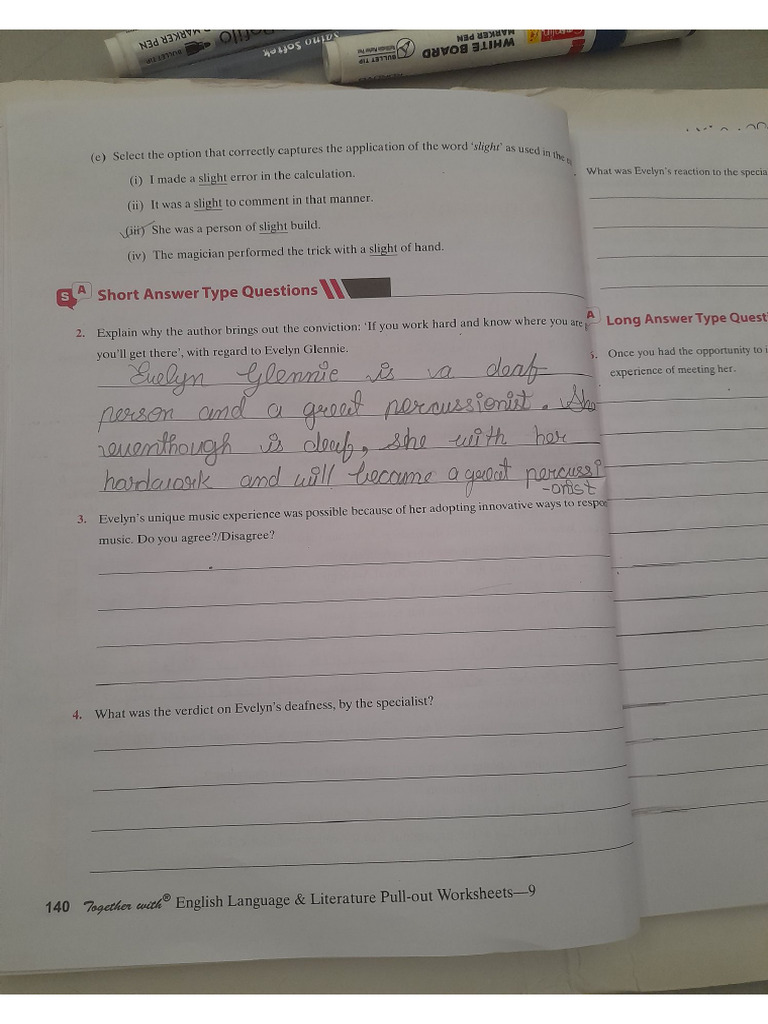 MARKER PEN
BULLET TIP
Softek
WHITE BOARD
MARKER PEN
BULLET TIP
(e) Select the option that correctly captures the application of the word 'slight' as used in the
(i) I made a slight error in the calculation.
(ii) It was a slight to comment in that manner.
(iii) She was a person of slight build.
(iv) The magician performed the trick with a slight of hand.
SA Short Answer Type Questions
2. Explain why the author brings out the conviction: 'If you work hard and know where you are
you'll get there', with regard to Evelyn Glennie.
Evelyn Glennie is a deaf
person and a great percussionist. She
eventhough is deaf, she with her
hardwork and will became a great percussi
-onist
3. Evelyn's unique music experience was possible because of her adopting innovative ways to respo
music. Do you agree?/Disagree?
4. What was the verdict on Evelyn's deafness, by the specialist?
140 Together with® English Language & Literature Pull-out Worksheets—9
What was Evelyn's reaction to the specia
A Long Answer Type Quest
5. Once you had the opportunity to i
experience of meeting her.